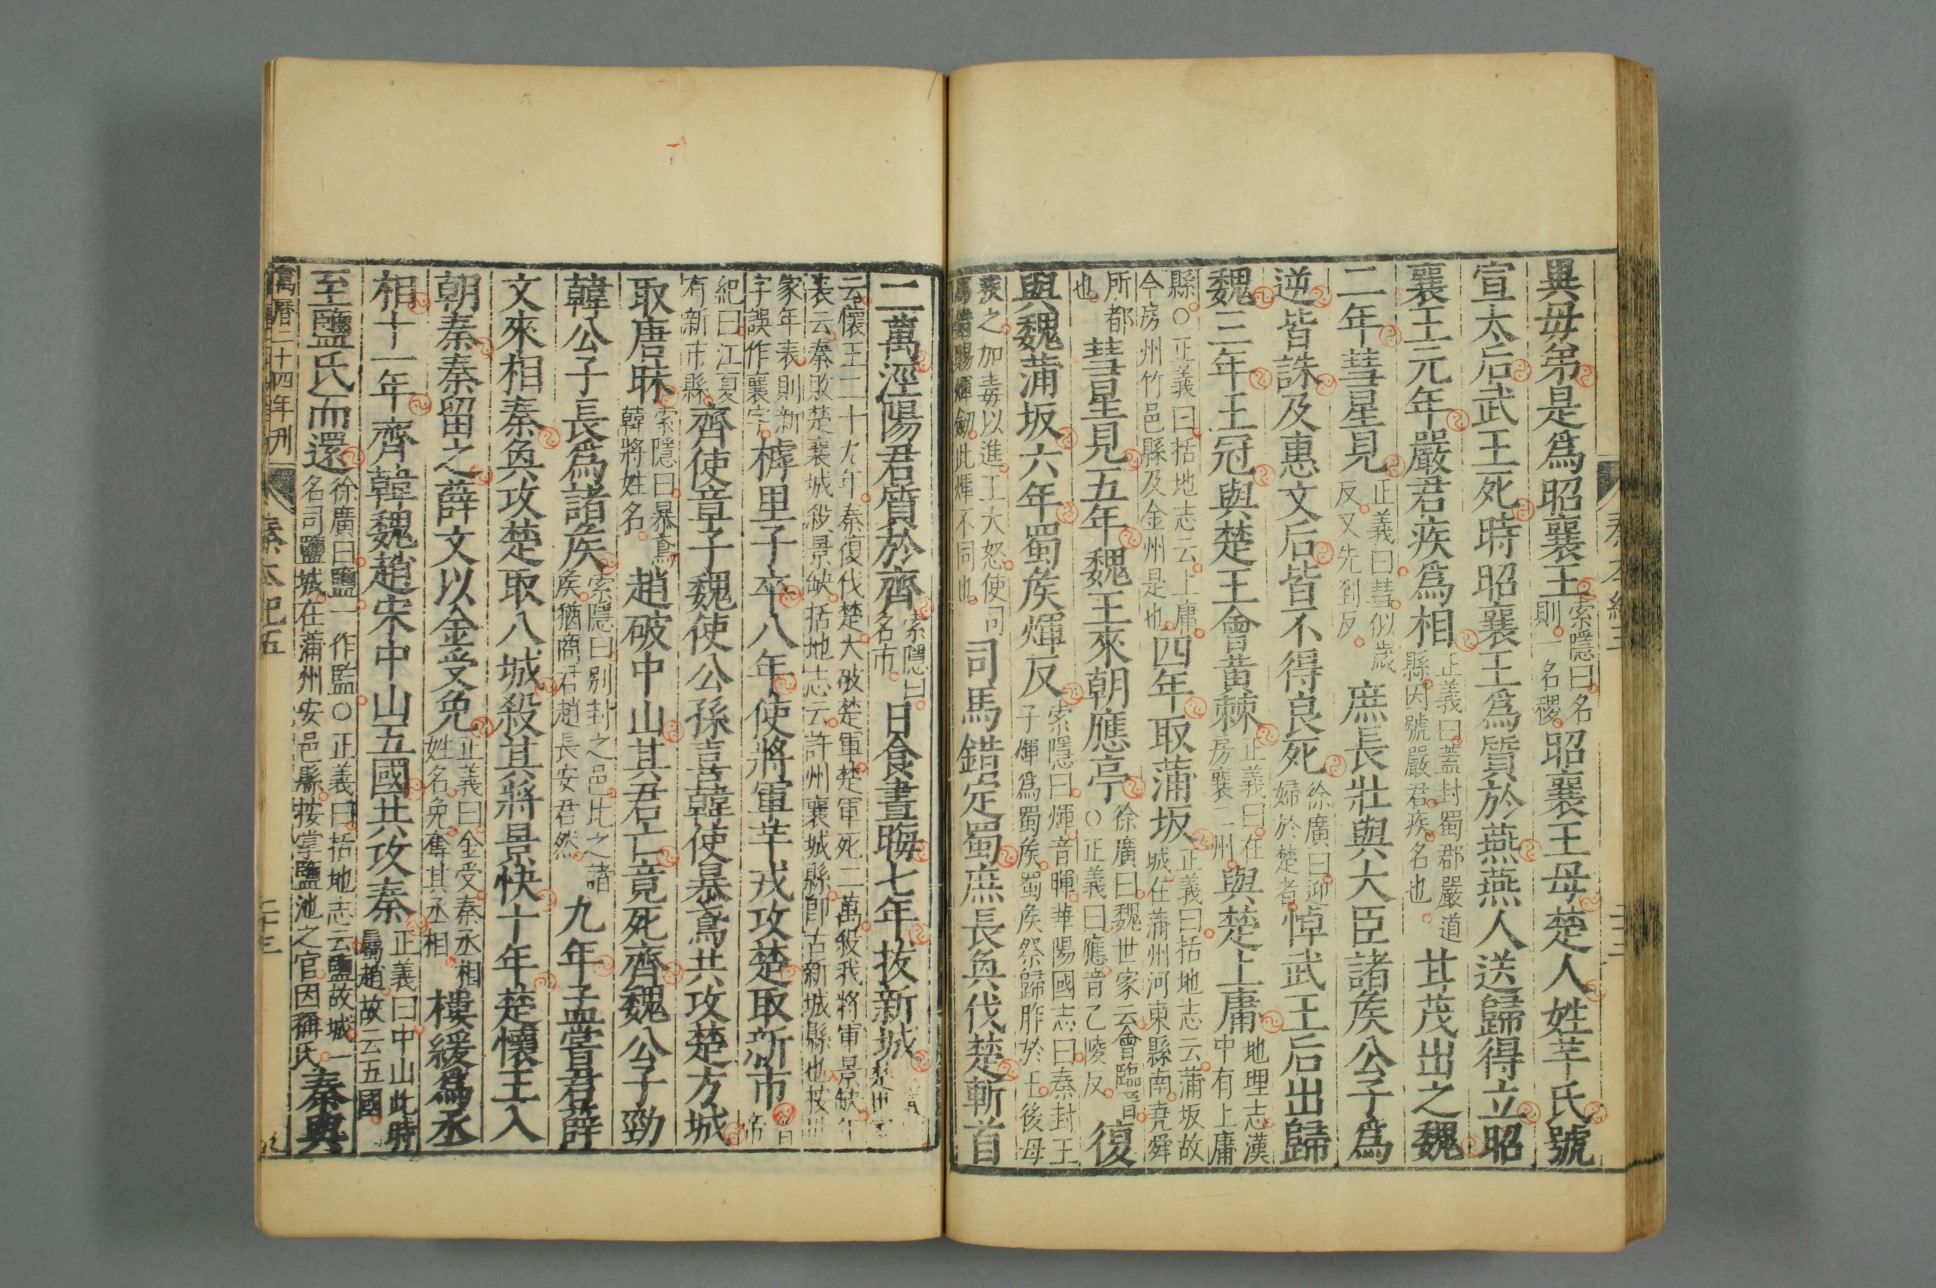 異母弟是爲昭襄王索隱曰名則一名稷昭襄王母楚人姓芈氏號
宣太后武王死時昭襄王爲質於燕燕人送歸得立昭
襄王元年嚴君疾爲相正義曰蓋封蜀郡嚴道縣因號嚴君疾名也甘茂出之魏
二年彗星見正義曰彗似歲反又先到反庶長壯與大臣諸矦公子爲
逆皆誅及惠文后皆不得良死徐廣曰迎婦於楚者悼武王后出歸
魏三年王冠與楚王會黃棘正義曰在房襄二州與楚上庸地理志漢中有上庸
縣○正義曰括地志云上庸今房州竹邑縣及金州是也四年取蒲坂正義曰括地志云蒲坂故城在蒲州河東縣南堯舜
所都也彗星見五年魏王來朝應亭徐廣曰魏世家云會臨晉○正義曰應音乙陵反復
與魏蒲坂六年蜀矦煇反索隱曰煇音暉華陽國志曰秦封王子煇爲蜀矦蜀矦祭歸胙於王後母
疾之加毒以進王大怒使司馬錯賜煇劒此煇不同也司馬錯定蜀庶長奐伐楚斬首
二萬涇陽君質於齊索隱曰名市日食晝晦七年拔新城
云懷王二十九年秦復伐楚大破楚軍楚軍死二萬殺我將軍景缺年表云秦敗楚襄城殺景缺括地志云許州襄城縣卽古新城縣也按
家年表則新字誤作襄字樗里子卒八年使將軍芈戎攻楚取新市晉
紀曰江夏有新市縣齊使章子魏使公孫喜韓使暴鳶共攻楚方城
取唐眛索隱曰暴鳶韓將姓名趙破中山其君亡竟死齊魏公子勁
韓公子長爲諸矦索隱曰別封之邑比之諸矦猶商君趙長安君然九年孟嘗君薛
文來相秦奐攻楚取八城殺其將景快十年楚懷王入
朝秦秦留之薛文以金受免正義曰金受秦丞相姓名免奪其丞相樓緩爲丞
相十一年齊韓魏趙宋中山五國共攻秦正義曰中山此時屬趙故云五國
至鹽氏而還徐廣曰鹽一作監○正義曰括地志云鹽故城一名司鹽城在蒲州安邑縣按掌鹽池之官因稱氏秦與
萬曆二十四年刊
秦本紀五
二十三